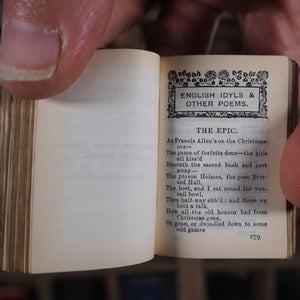 ENGLISH IDYLS &
OTHER POEMS.
THE EPIC.
At Francis Allen's on the Christmas-
eve—
The game of forfeits done—the girls
all kiss'd
Beneath the sacred bush and past
away—
The parson Holmes, the poet Ever-
ard Hall,
The host, and I sat round the was-
sail bowl,
Then half-way ebb'd: and there we
held a talk,
How all the old honour had from
Christmas gone,
Or gone, or dwindled down to some
odd games
279